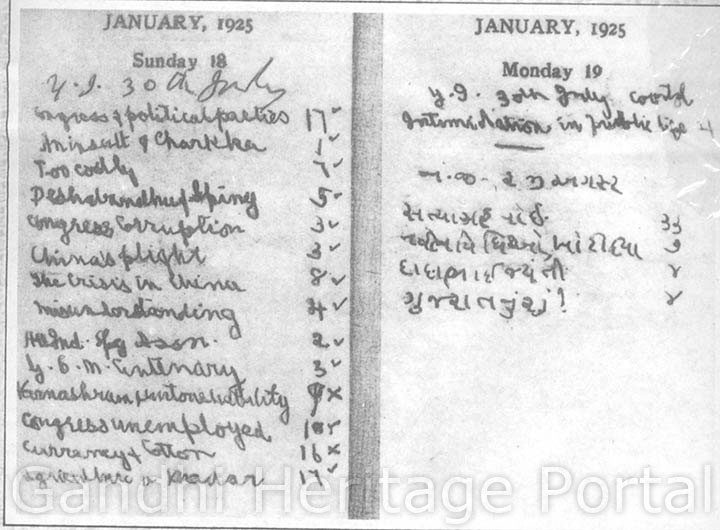 JANUARY, 1925
Sunday 18
Y. I. 30th July
Congress & political parties 17 ✓
An insult & Charkha 1 ✓
Too costly
Deshabandhu & Spinng 5 ✓
Congress Corruption 3 ✓
China's plight 3 ✓
The Crisis in China 8 ✓
Misunderstanding 4 ✓
All Ind. Spg Assn. 2 ✓
Y. C. M. Centenary 3 ✓
Varnashram & untouchability ×
Congress unemployed
Currency & Cotton 16 ×
Agriculture 17 ✓
JANUARY, 1925
Monday 19
Y. I. 30th July contd
Intimidation in Public life 4
ન. જી. ૨ જી ઓગસ્ટ
સત્યાગ્રહ
દાદાભાઈ જયંતી ૪
ગુજરાતનું શું? ૪
Gandhi Heritage Portal